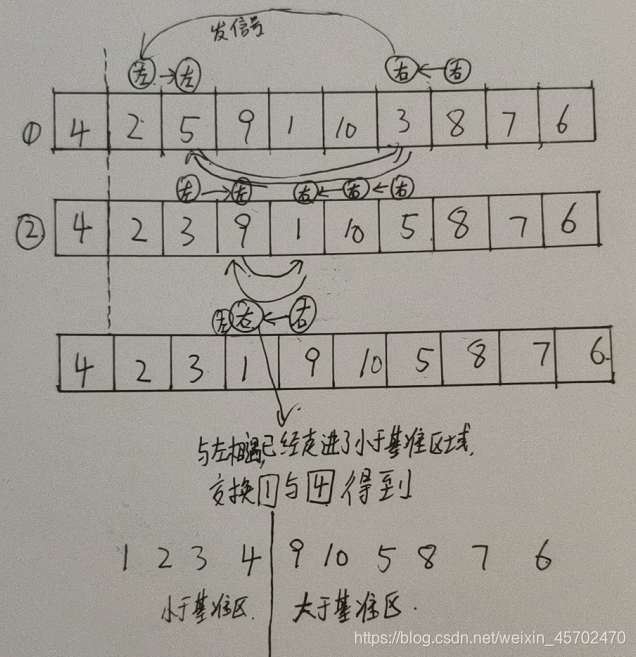 发信号
左→左 右←右
① 4 2 5 9 1 10 3 8 7 6
左→左 右←右←右
② 4 2 3 9 1 10 5 8 7 6
左右←右
4 2 3 1 9 10 5 8 7 6
与左相遇,已经走进了小于基准区域,
交换1与4得到
1 2 3 4 9 10 5 8 7 6
小于基准区. 大于基准区.
https://blog.csdn.net/weixin_45702470